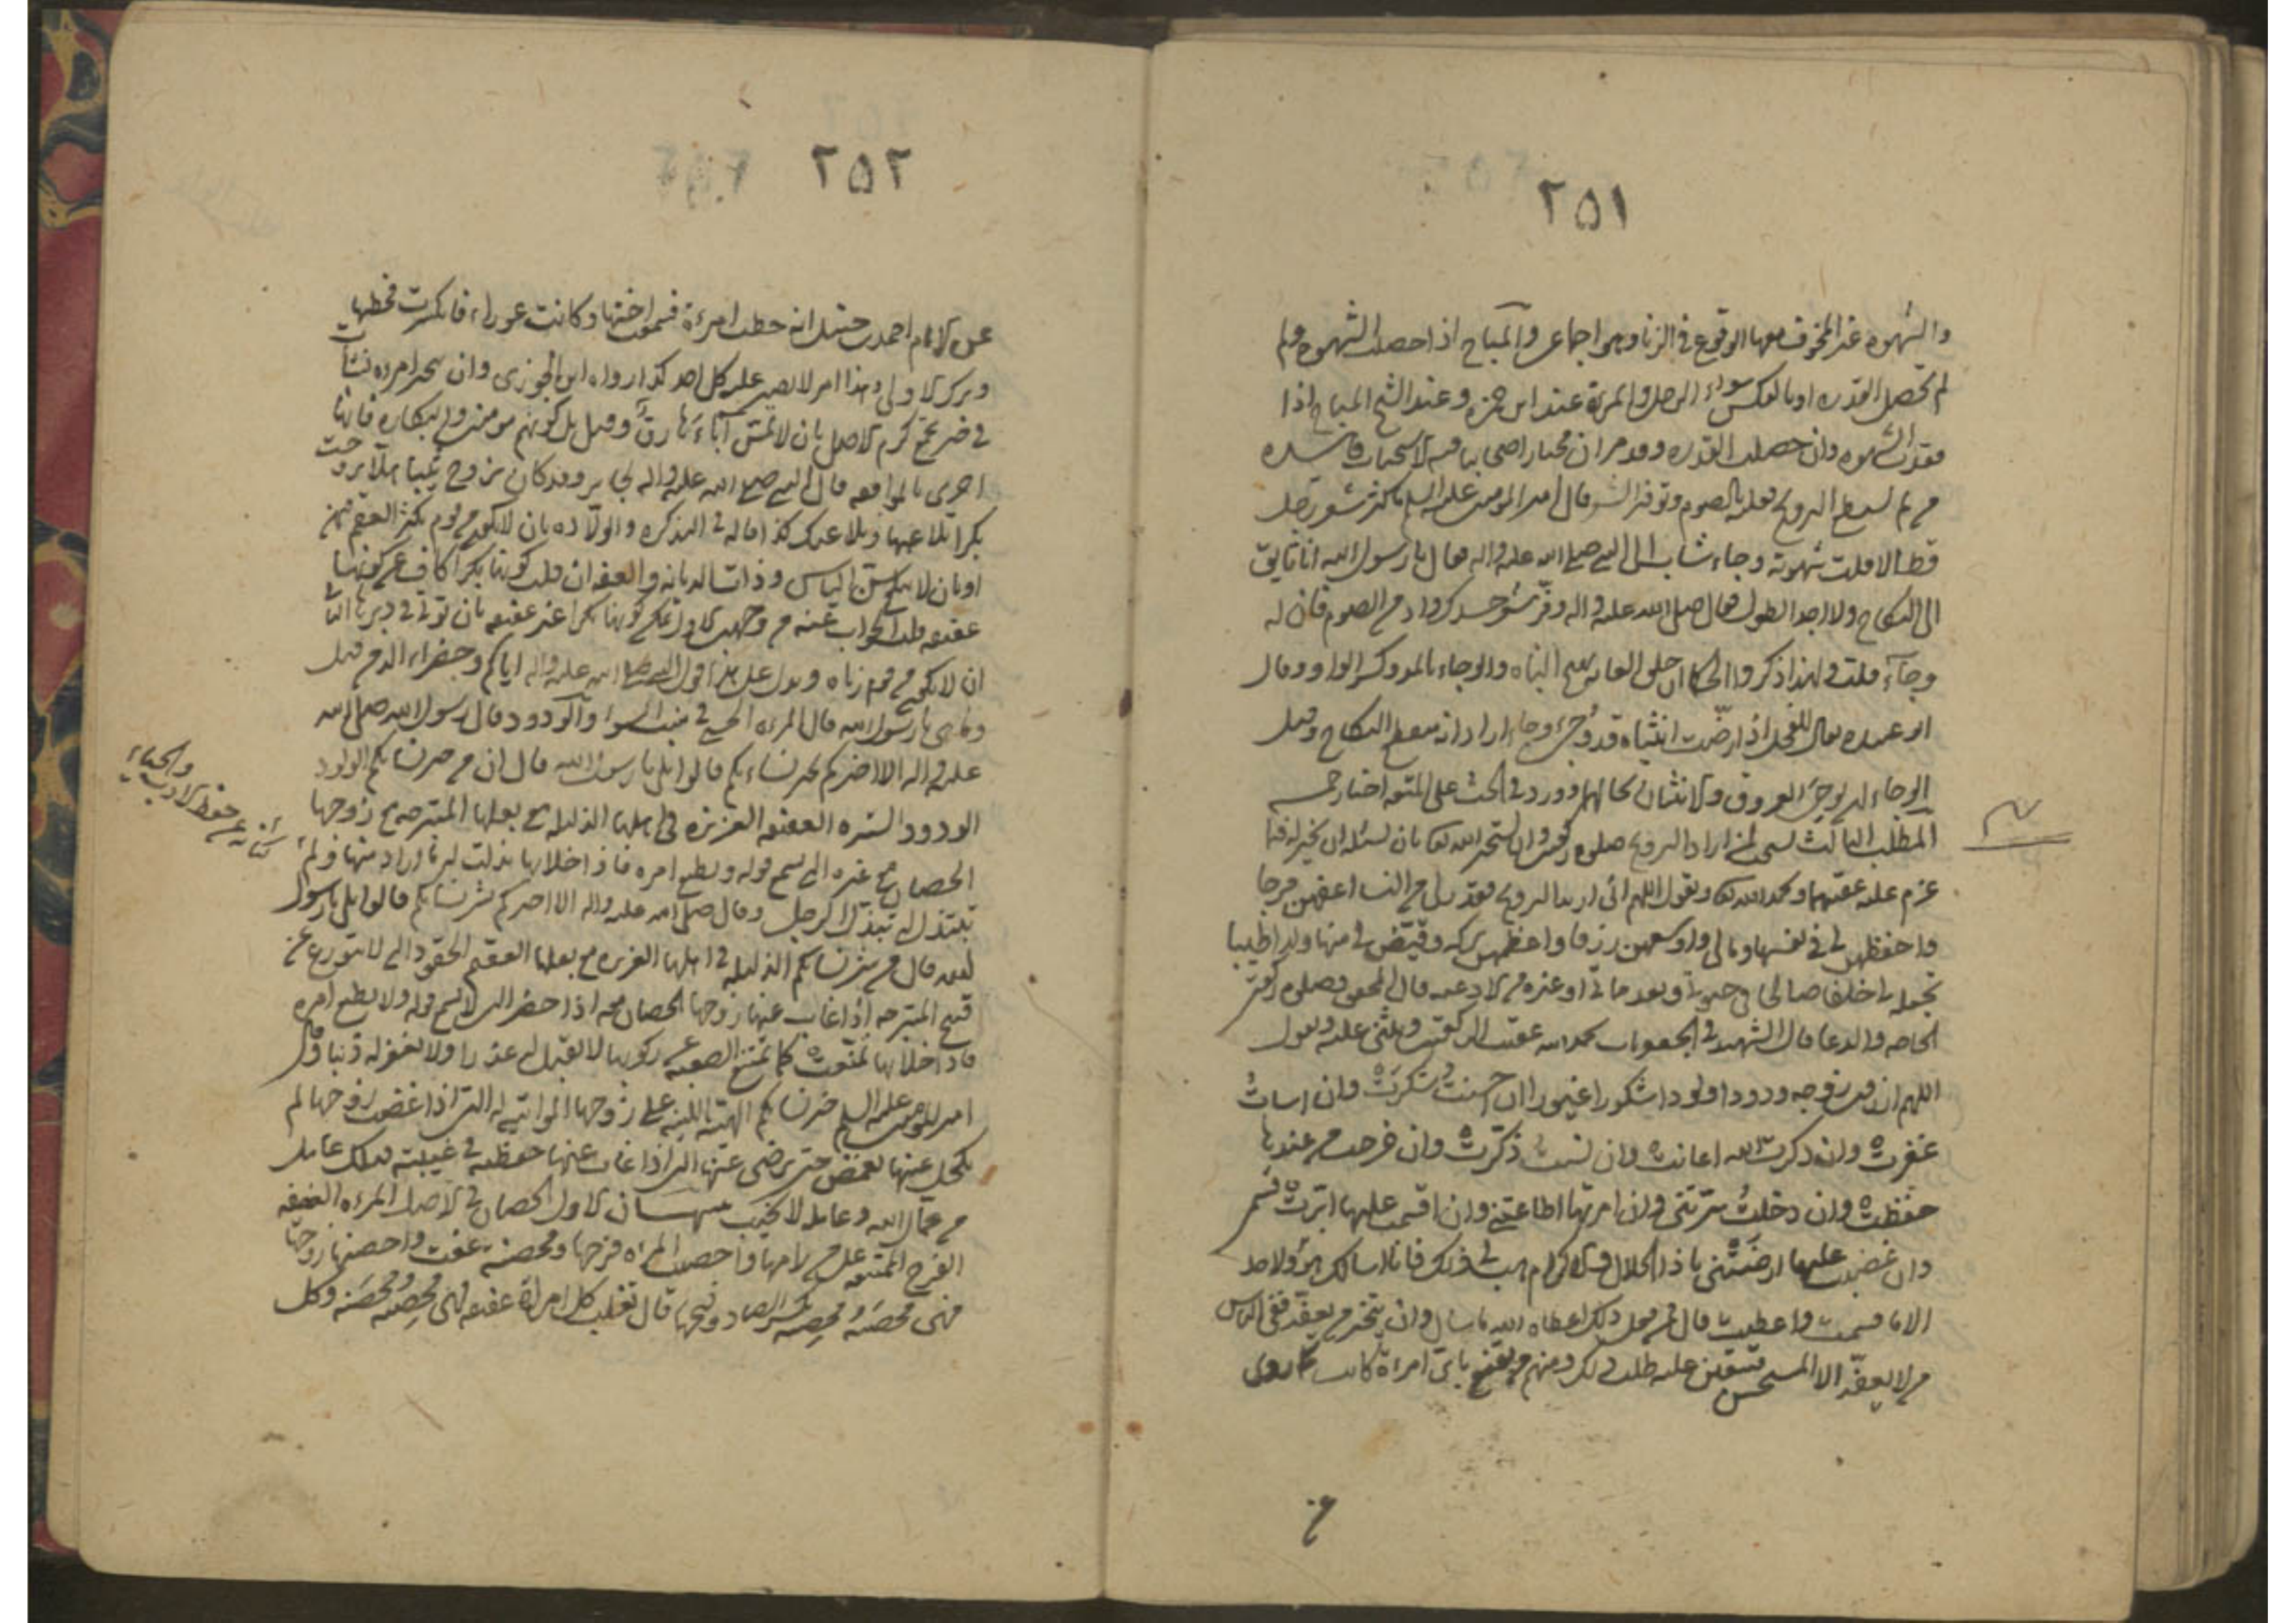 ٢٥١
والشهوه غير المخوف معها الوقوع في الزنا وهو اجماعى والمباح اذا حصلت الشهوه ولم
لم تحصل القدره او بالعكس سواء الرجل والمرءة عند ابن حمزه وعند الشيخ المباح اذا
فقدت الشهوه وان حصلت القدره وقد مر ان مختار اصحابنا فيه الاستحباب
من لم يستطع التزويج فعليه بالصوم وتوفير الشعر قال امير المومنين عليه السلم ما كثر شعر رجل
قط الا قلت شهوته وجاء شاب الى النبي صلى الله عليه واله فقال يا رسول الله انا تايق
الى النكاح ولا اجد الطول فقال صلى الله عليه واله وفّر شعر جسدك وادم الصوم فان له
وجآء قلت ولهذا ذكروا الباه والوجاء بالمد وكسر الواو وقال
ابو عبيده يقال للفحل اذا رضّت انثياه قد وُجئ وجاءا اراد انه يقطع النكاح وقيل
الوجاء ان يوجئ العروق والانثيان بحالهما وورد في الحث على المتعه اخبار جمه
المطلب الثالث يستحب لمن اراد التزويج صلوه ركعتين وان يستخير الله تعالى بان يسئله ان يخير له فيما
عزم عليه عقيبهما ويحمد الله تعالى ويقول اللهم انى اريد التزويج فقدر لى من النسا اعفهن فرجا
واحفظهن لى في نفسها ومالى واوسعهن رزقا واعظمهن بركه وقيّض لى منها ولدا طيبا
تجعله لى خلفا صالحا في حيوتى وبعد مماتى او غيره من الادعيه قال المحقق وصلوه ركعتى
الحاجه والدعا قال الشهيد يحمد الله عقيب الركعتين ويثنى عليه ويقول
اللهم ارزقنى زوجه ودودا ولودا شكورا غيورا ان احسنت شكرت وان اسات
غفرت وان ذكرت الله اعانت وان نسيت ذكّرت وان خرجت من عندها
حفظت وان دخلت سرّتنى وان امرتها اطاعتنى وان اقسمت عليها ابرّت قسمى
وان غضبت عليها ارضتنى يا ذا الجلال والاكرام هب لى ذلك فانما اسالك ولا اجد
الا ما قسمت واعطيت قال من فعل ذلك اعطاه الله ما سال وان يتخير من يعقد ففى الناس
من لا يعفّه الا المستحسن فيتعين عليه طلب ذلك ومنهم من يقنع باى امراة كانت كما روى
٢٥٢
عن الامام احمد بن حنبل انه خطب امرءة فسموا اختها وكانت عوراء فانكرت فخطبها
وترك الاولى وهذا امر لا يصبر عليه كل احد كذا رواه ابن الجوزى وان يتخير امرءه نشات
في خير نخع كرم الاصل بان لا تمس آباءَها رقٌ وقيل بل كونهم مومنين والبكاره فانها
احرى بالموافقه قال النبي صلى الله عليه واله لجابر وقد كان تزوج ثيبا هلا تزوجت
بكرا تلاعبها وتلاعبك كذا قاله في التذكره والولّاده بان لا تكون من قوم يكثر العقم فيهن
او بان لا تكون بسن الياس وذات الديانه والعفه ان قلت كونها بكرا كاف عن كونها
عفيفه قلت الجواب عنه من وجهين الاول يمكن كونها بكرا غير عفيفه بان توتى في دبرها الثانى
ان لا تكون من قوم زناه ويدل على هذا قول النبي صلى الله عليه واله اياكم وخضراء الدمن قيل
وما هى يا رسول الله قال المرءه الحسنه في منبت السوء والودود قال رسول الله صلى الله
عليه واله الا اخبركم بخير نساءكم قالوا بلى يا رسول الله قال ان من خير نسائكم الولود
الودود الستيره العفيفه العزيزه في اهلها الذليله مع بعلها المتبرجه مع زوجها
الحصان مع غيره التى تسمع قوله وتطيع امره فاذا خلا بها بذلت له ما اراد منها ولم
تتبذل له تبذّل الرجل وقال صلى الله عليه واله الا اخبركم بشر نسائكم قالوا بلى يا رسول
الله قال من شر نسائكم الذليله في اهلها العزيزه مع بعلها العقيم الحقود التى لا تتورع عن
قبيح المتبرجه اذا غاب عنها زوجها الحصان معه اذا حضر التى لا تسمع قوله ولا تطيع امره
فاذا خلا بها تمنّعت كما تمنّع الصعبه عن ركوبها لا تقبل له عذرا ولا تغفر له ذنبا وقال
امير المومنين عليه السلم خير نسائكم الهيّنه الليّنه على زوجها المواتيه له التى اذا غضب زوجها لم
تكحل عينها بغمض حتى يرضى عنها التى اذا غاب عنها حفظته في غيبته فتلك عامل
من عمال الله وعامله لا يخيب تنبيهان الاول الحصان في الاصل المرءه العفيفه
الفرج المتمنعه على من رامها واحصنت المرءه فرجها ومحصنه عفت واحصنها زوجها
فهى محصَنه ومحصِنه بكسر الصاد وفتحها قال ثعلب كل امراة عفيفه فهى محصِنه ومحصَنه وكل
كنايه عن حفظ الادب
والحياء